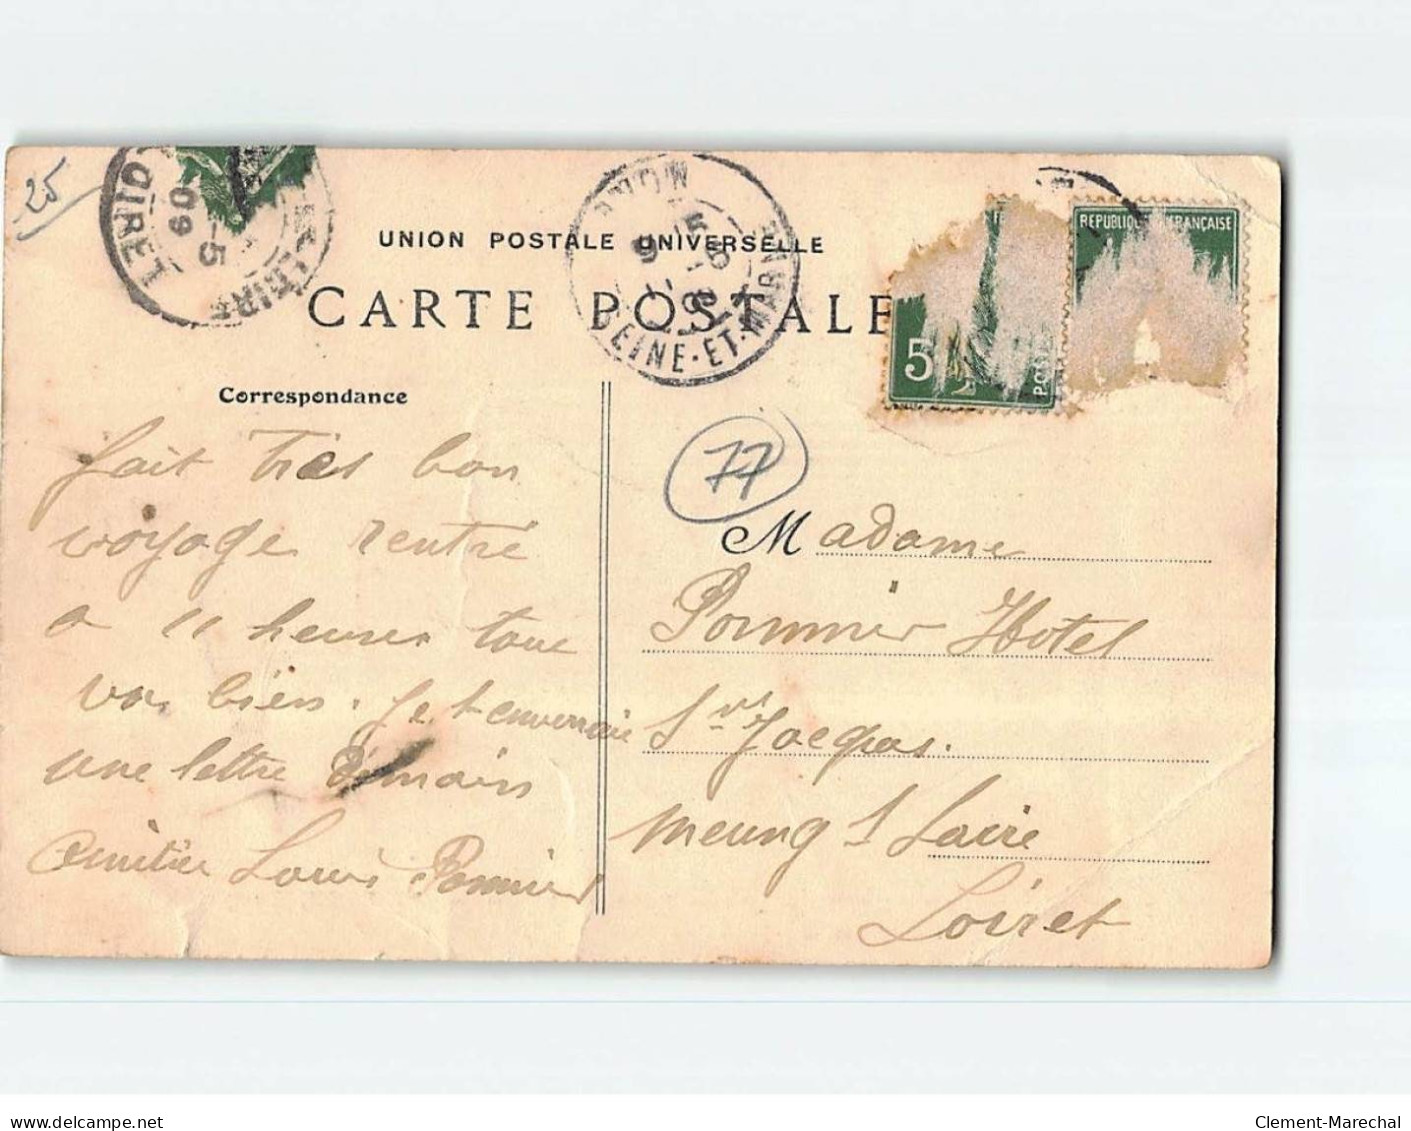 25
UNION POSTALE UNIVERSELLE
CARTE POSTALE
SEINE-ET-MARNE
LOIRET
09
5
REPUBLIQUE FRANÇAISE
5
POS
Correspondance
77
fait tres bon
voyage rentré
a 11 heures tout
vas bien. Je t'enverraie
une lettre demain
amitié Louis Pommier
Madame
Pommier Hotel
St Jacques.
Meung s Loire
Loiret
delcampe.net
Clement-Marechal